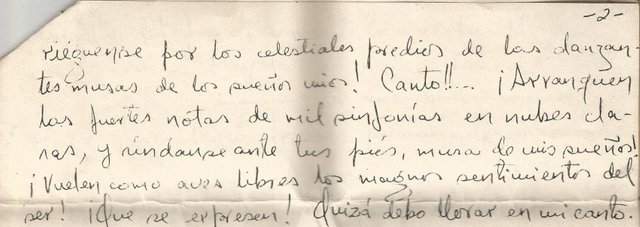 -2-
riéguense por los celestiales predios de las danzan
tes musas de los sueños míos! Canto!!... ¡Arranquen
las fuertes notas de mil sinfonías en nubes cla-
ras, y ríndanse ante tus piés, musa de mis sueños!
¡Vuelen como aves libres los magnos sentimientos del
ser! ¡Que se expresen! Quizá debo llorar en mi canto.